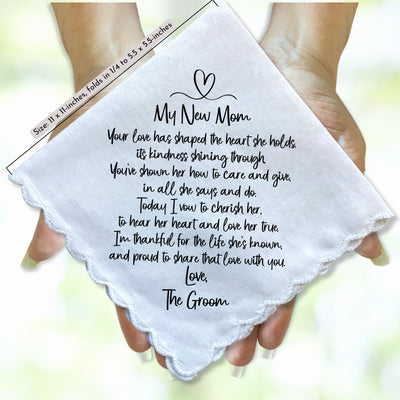 Size: 11 x 11-inches, folds in 1/4 to 5.5 x 5.5-inches
My New Mom
Your love has shaped the heart she holds,
its kindness shining through.
You've shown her how to care and give,
in all she says and do.
Today I vow to cherish her,
to hear her heart and love her true.
I'm thankful for the life she's known,
and proud to share that love with you.
Love,
The Groom